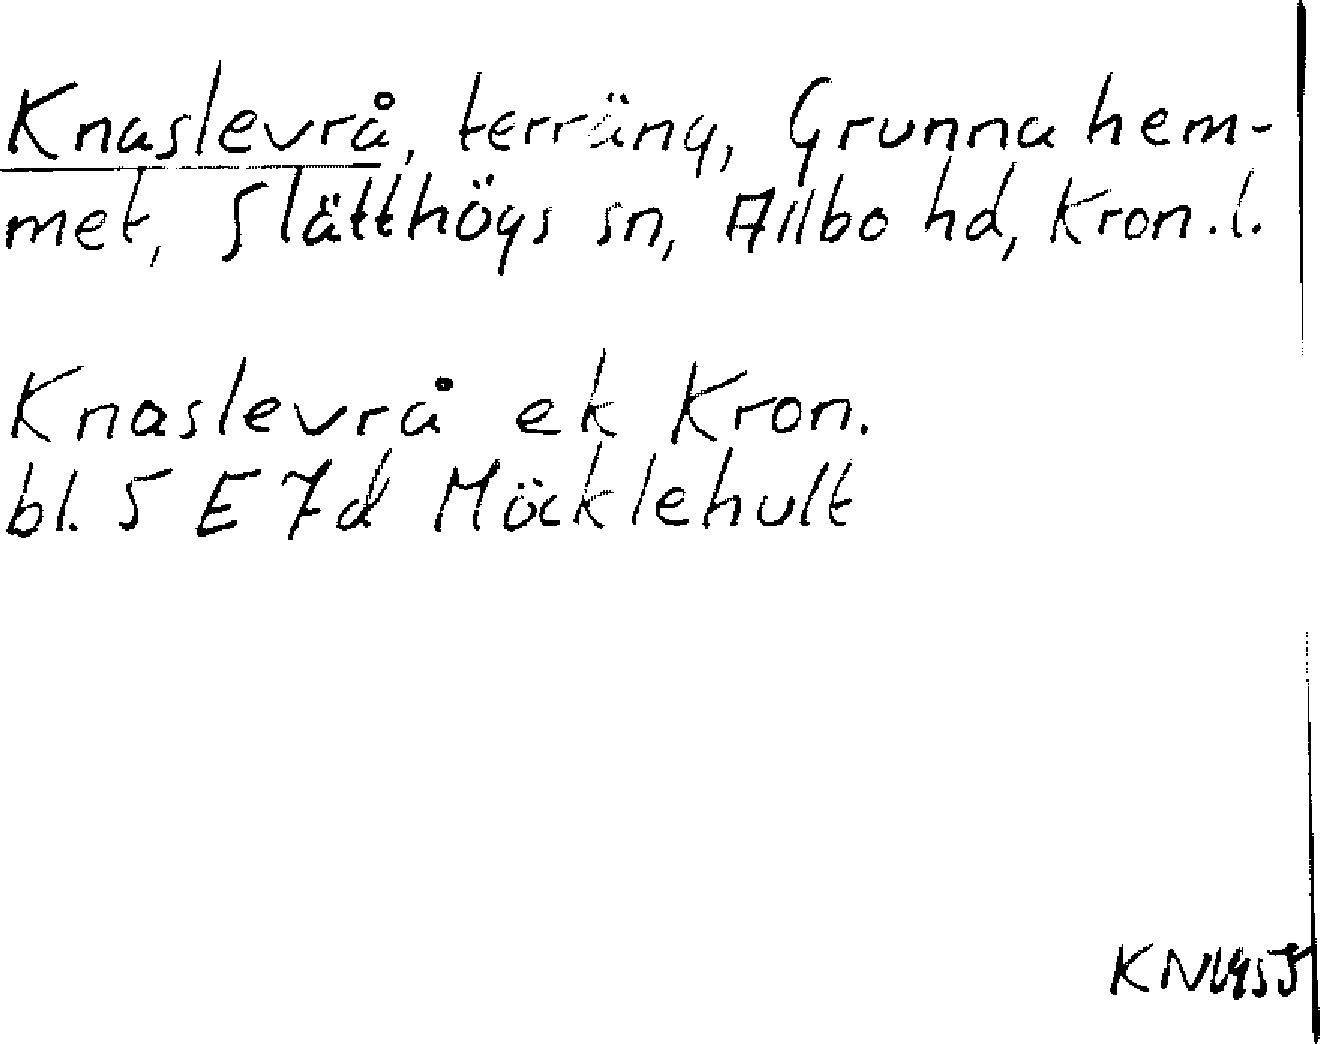 Knaslevrå, terräng, Grunnahem-
met, Slätthögs sn, Allbo hd, Kron.l.
Knaslevrå ek Kron.
bl. 5 E 7d Möcklehult